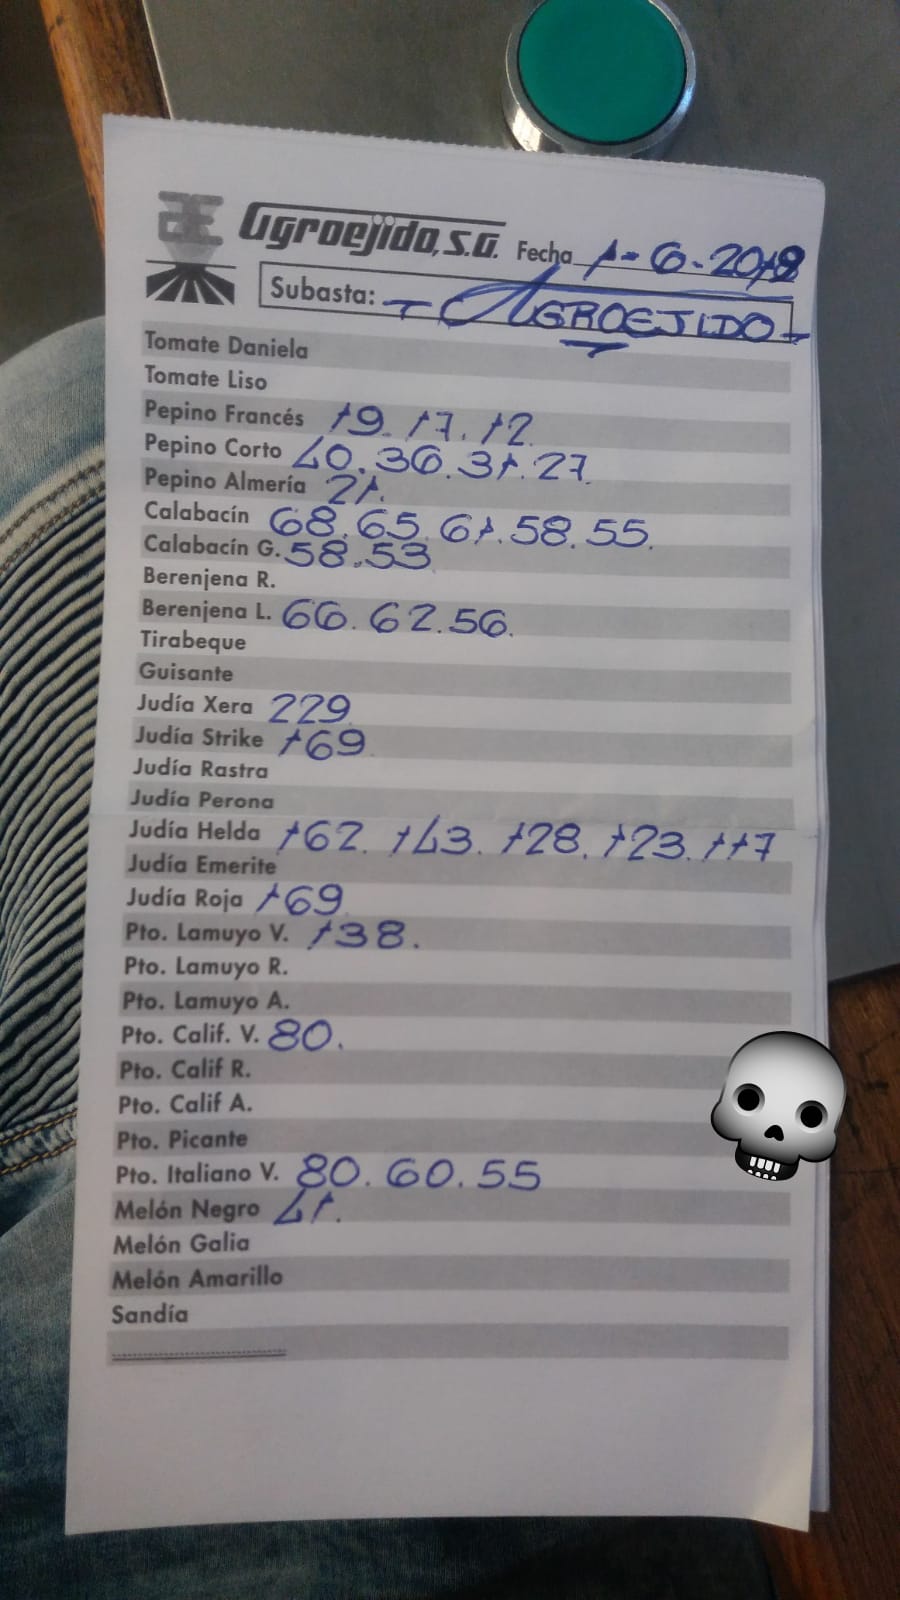 Agroejido, S.A. Fecha 1-6-2018
Subasta: - AGROEJIDO -
Tomate Daniela
Tomate Liso
Pepino Francés 19. 17. 12.
Pepino Corto 40. 36. 31. 27.
Pepino Almería 21.
Calabacín 68. 65. 61. 58. 55.
Calabacín G. 58. 53
Berenjena R.
Berenjena L. 66. 62. 56.
Tirabeque
Guisante
Judía Xera 229.
Judía Strike 169.
Judía Rastra
Judía Perona
Judía Helda 162. 143. 128. 123. 117
Judía Emerite
Judía Roja 169.
Pto. Lamuyo V. 138.
Pto. Lamuyo R.
Pto. Lamuyo A.
Pto. Calif. V. 80.
Pto. Calif R.
Pto. Calif A.
Pto. Picante
Pto. Italiano V. 80. 60. 55
Melón Negro 41.
Melón Galia
Melón Amarillo
Sandía